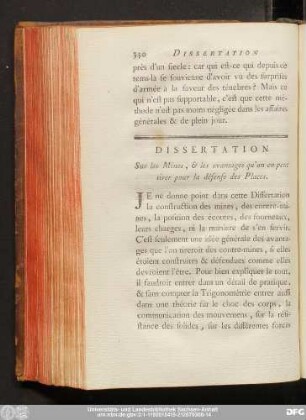 330 DISSERTATION
près d'un siecle: car qui est-ce qui depuis ce
tems-là se souvienne d'avoir vu des surprises
d'armée à la faveur des ténebres? Mais ce
qui n'est pas supportable, c'est que cette mé-
thode n'est pas moins négligée dans les affaires
générales & de plein jour.
DISSERTATION
Sur les Mines, & les avantages qu'on en peut
tirer pour la défense des Places.
JE ne donne point dans cette Dissertation
la construction des mines, des contre-mi-
nes, la position des écoutes, des fourneaux,
leurs charges, ni la maniere de s'en servir.
C'est seulement une idée générale des avanta-
ges que l'on tireroit des contre-mines, si elles
étoient construites & défendues comme elles
devroient l'être. Pour bien expliquer le tout,
il faudroit entrer dans un détail de pratique,
& sans compter la Trigonométrie entrer aussi
dans une théorie sur le choc des corps, la
communication des mouvemens, sur la rési-
stance des solides, sur les différentes forces
Universitäts- und Landesbibliothek Sachsen-Anhalt